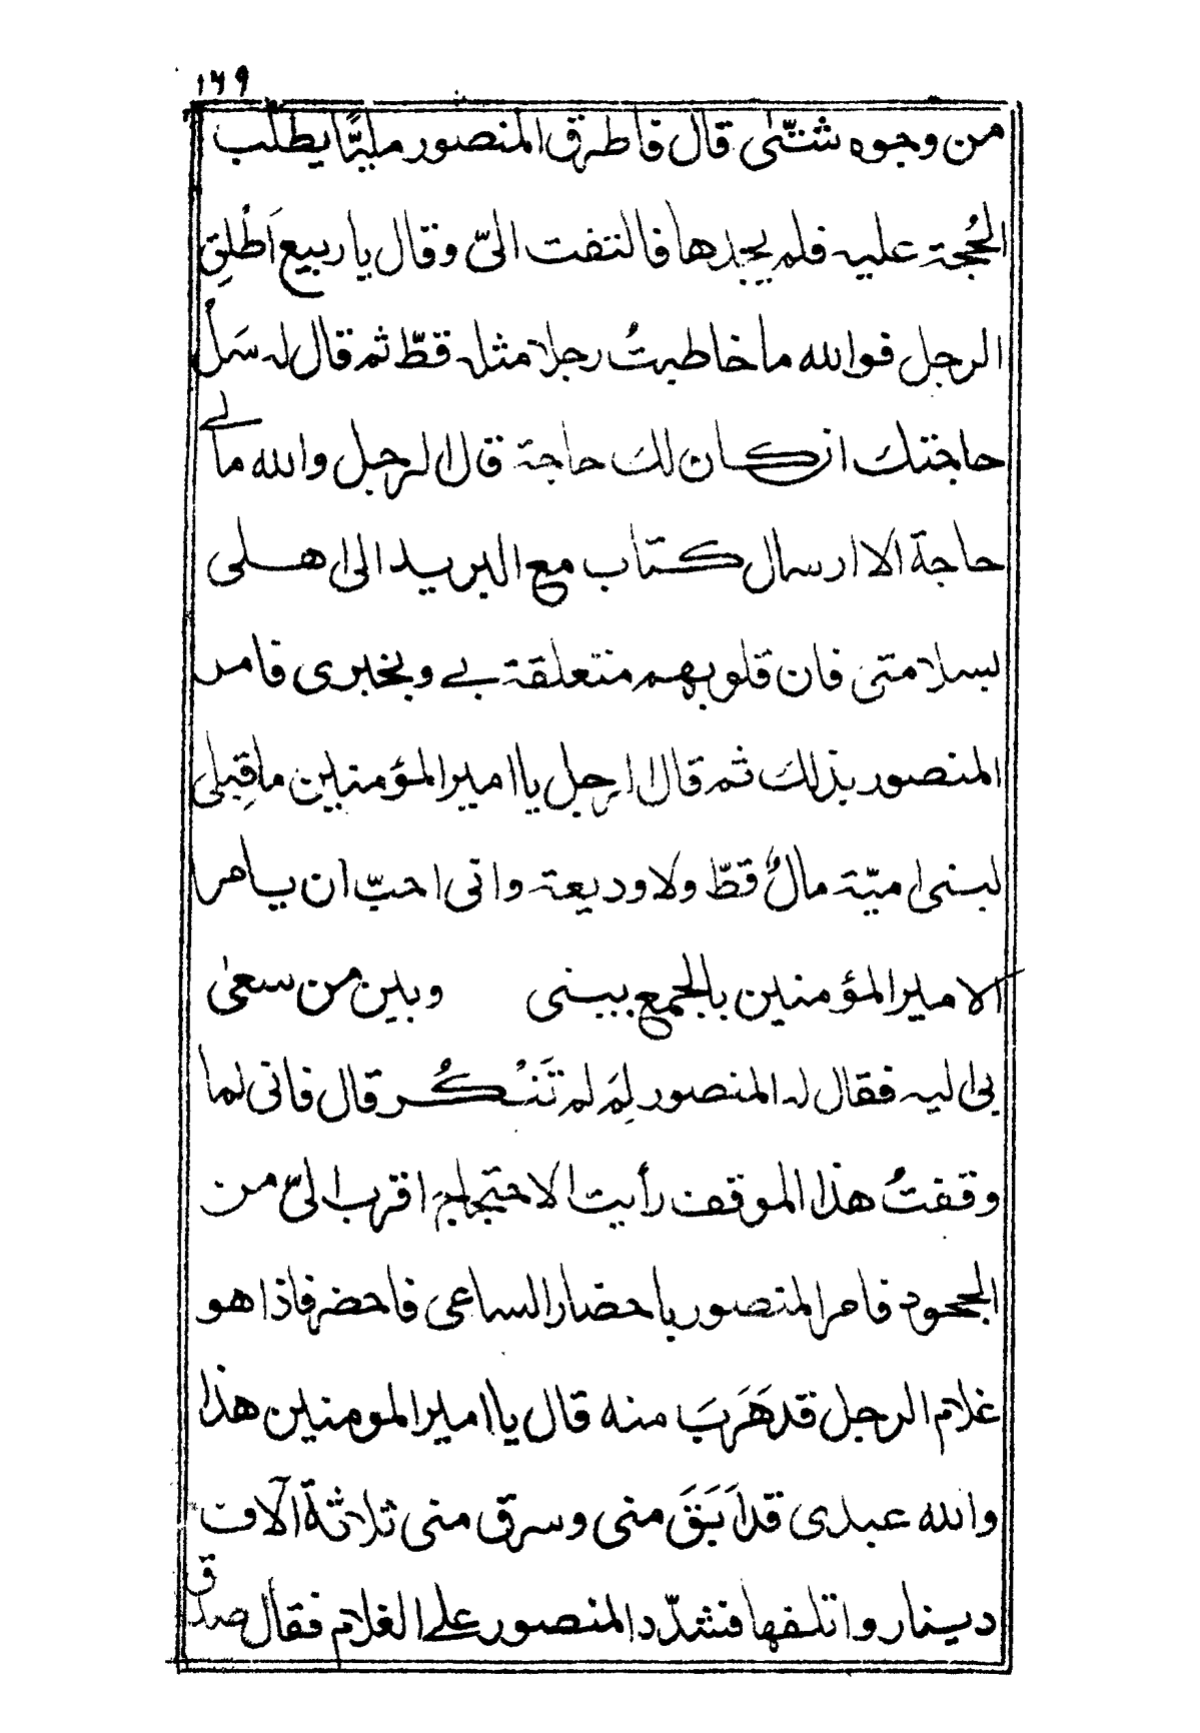 ١٦٩
من وجوه شتّٰى قال فاطرق المنصور مليًّا يطلب
الحُجة عليه فلم يجدها فالتفت الىّ وقال يا ربيع اَطْلِق
الرجل فوالله ما خاطبتُ رجلا مثله قطّ ثم قال له سَلْ
حاجتكَ ان كان لكَ حاجة قال الرجل والله ما لے
حاجة الا ارسال كتاب مع البريد الى اهلى
بسلامتى فان قلوبهم متعلقة بے وبخبرى فامر
المنصور بذلكَ ثم قال الرجل يا امير المؤمنين ما قِبلى
لبنى اميّة مالٌ قطّ ولا وديعة وانى احبّ ان يامر
الامير المؤمنين بالجمع بينى وبين من سعىٰ
بى اليه فقال له المنصور لِمَ لم تَنْكُر قال فانى لما
وقفتُ هذا الموقف رأيت الاحتجاج اقرب الىّ من
الجحود فامر المنصور باحضار الساعى فاحضر فاذا هو
غلام الرجل قد هَرَبَ منه قال يا امير المومنين هذا
والله عبدى قد اَبَقَ منى وسرق منى ثلاثة آلاف
دينار واتلفها فشدّد المنصور على الغلام فقال صدق